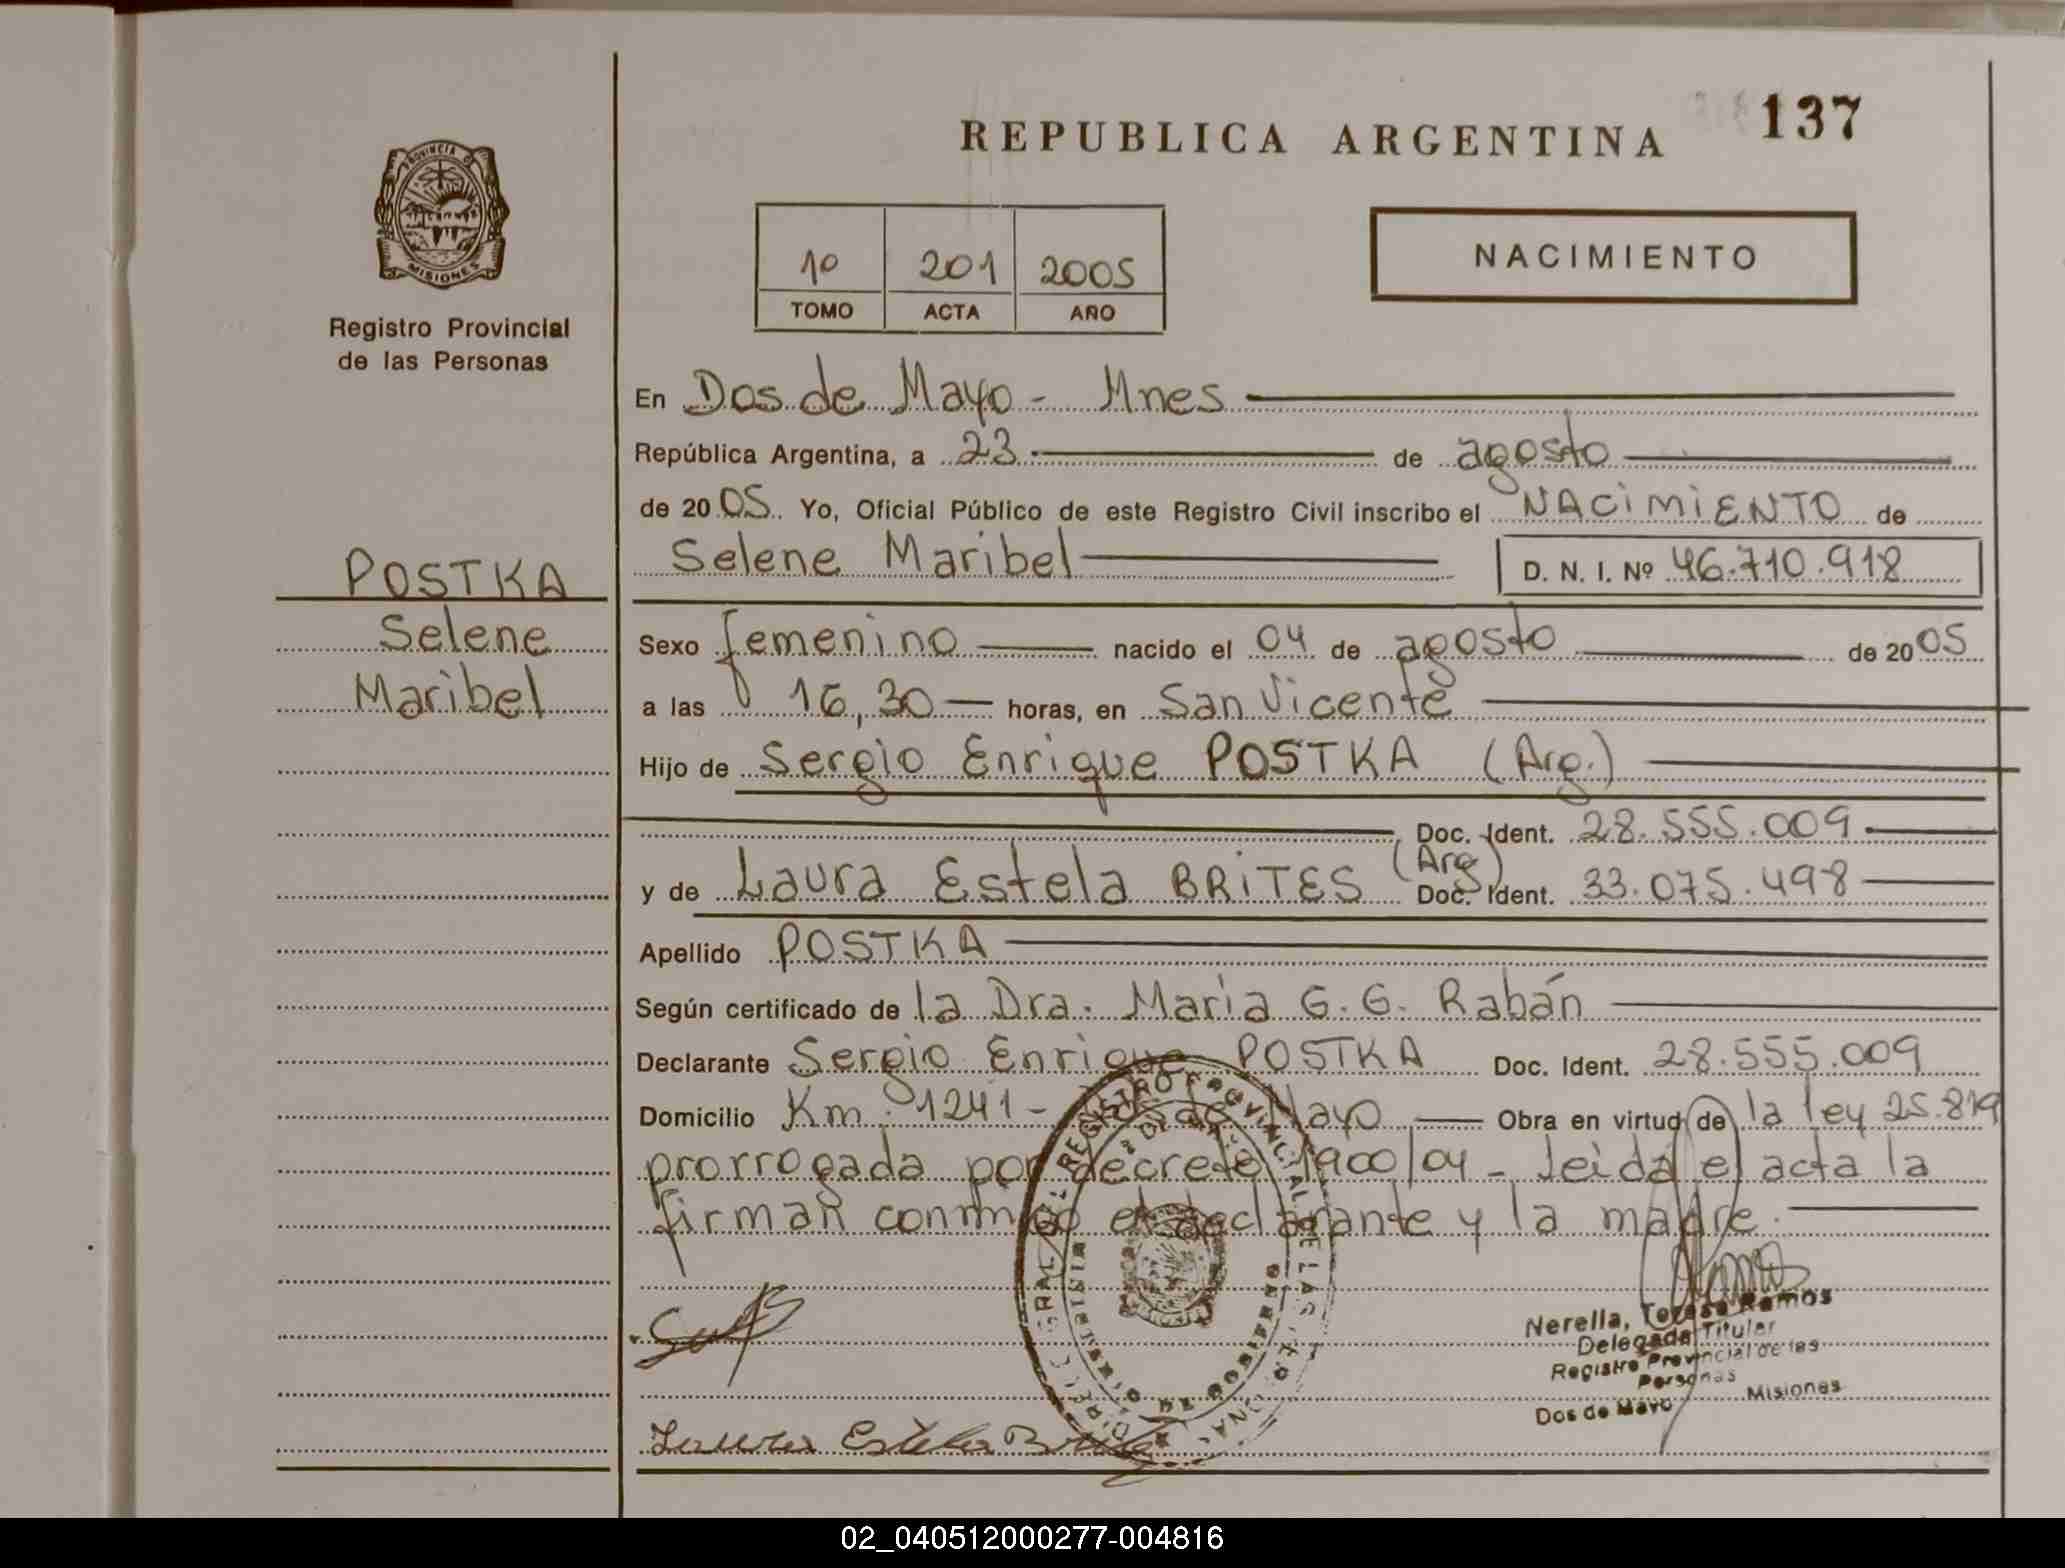 PROVINCIA D
MISIONES
Registro Provincial
de las Personas
POSTKA
Selene
Maribel
REPUBLICA ARGENTINA
137
1º 201 2005
TOMO ACTA AÑO
NACIMIENTO
En Dos de Mayo - Mnes
República Argentina, a 23 de agosto
de 2005. Yo, Oficial Público de este Registro Civil inscribo el NACIMIENTO de
Selene Maribel D. N. I. Nº 46.710.918
Sexo femenino nacido el 04 de agosto de 2005
a las 16,30 horas, en San Vicente
Hijo de Sergio Enrique POSTKA (Arg.)
Doc. Ident. 28.555.009
y de Laura Estela BRITES (Arg) Doc. Ident. 33.075.498
Apellido POSTKA
Según certificado de la Dra. Maria G. G. Rabán
Declarante Sergio Enrique POSTKA Doc. Ident. 28.555.009
Domicilio Km. 1241 - Mayo Obra en virtud de la ley 25.819
prorrogada por decreto 1900/04 - Leida el acta la
firman conmigo el declarante y la madre.
Nerella, Teresa Ramos
Delegada Titular
Registro Provincial de las
Personas
Dos de Mayo Misiones
Laura Estela
02_040512000277-004816